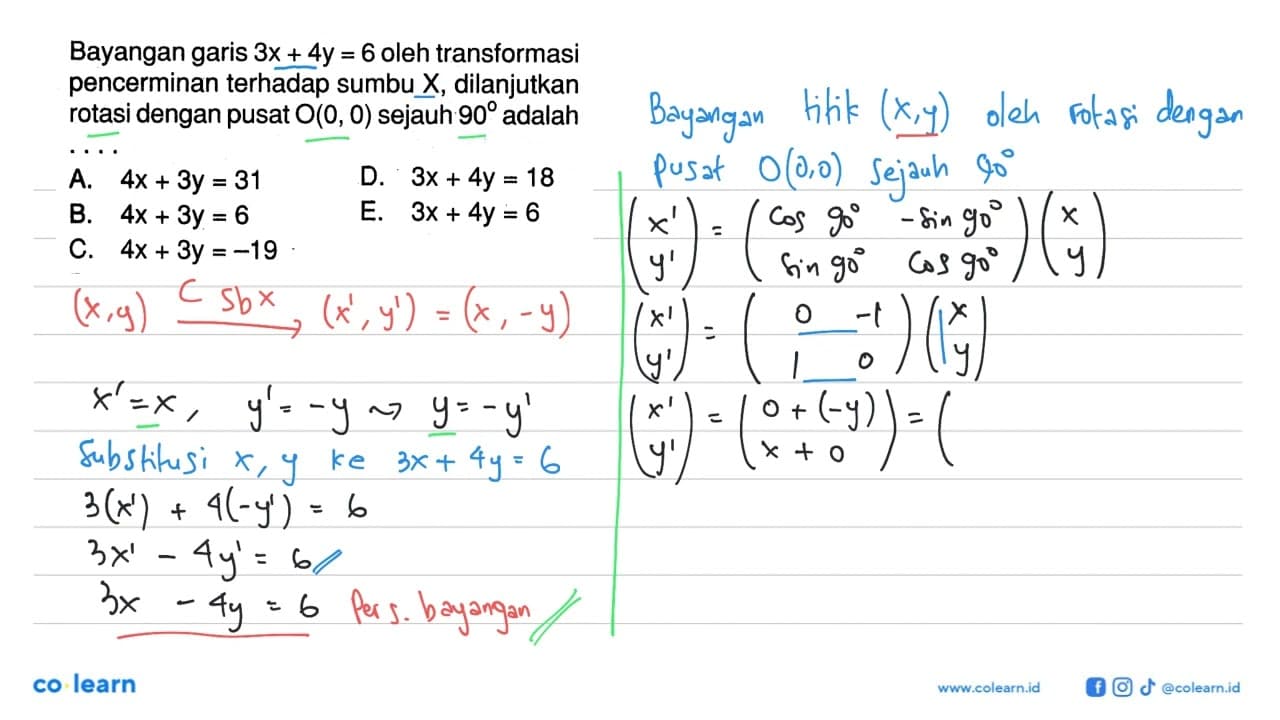 Bayangan garis 3x + 4y = 6 oleh transformasi
pencerminan terhadap sumbu X, dilanjutkan
rotasi dengan pusat O(0, 0) sejauh 90° adalah
. . . .
A. 4x + 3y = 31
B. 4x + 3y = 6
C. 4x + 3y = –19
D. 3x + 4y = 18
E. 3x + 4y = 6
(x,y) C sb x (x', y') = (x, -y)
x' = x, y' = -y ⤳ y = -y'
Substitusi x, y ke 3x + 4y = 6
3(x') + 4(-y') = 6
3x' - 4y' = 6
3x - 4y = 6 Pers. bayangan
Bayangan titik (x,y) oleh rotasi dengan
pusat O(0,0) sejauh 90°
(x' y') = (cos 90° -sin 90° sin 90° cos 90°) (x y)
(x' y') = (0 -1 1 0) (x y)
(x' y') = (0 + (-y) x + 0) = (
co learn
www.colearn.id
@colearn.id